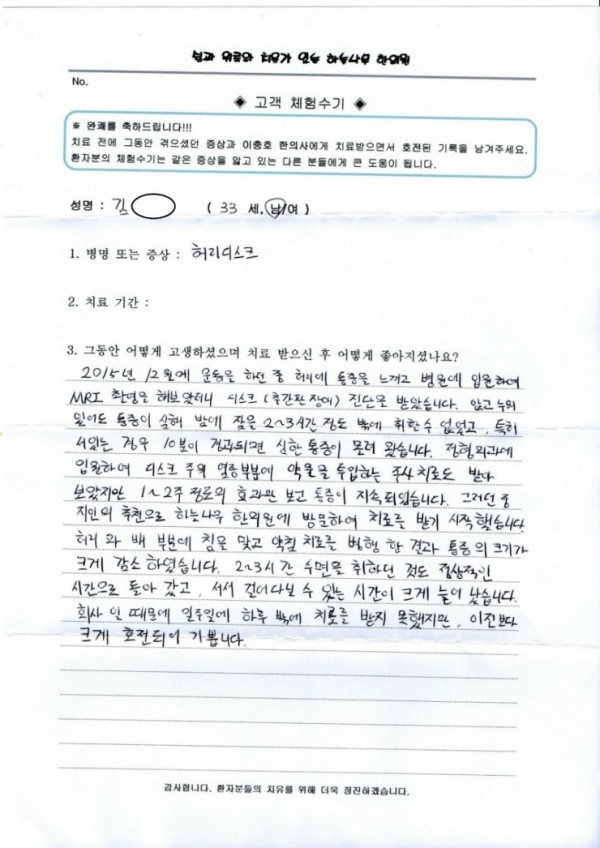 쉼과 위로와 치유가 있는 하늘나무 한의원
No.
◈ 고객 체험수기 ◈
※ 완쾌를 축하드립니다!!!
치료 전에 그동안 겪으셨던 증상과 이충호 한의사에게 치료받으면서 호전된 기록을 남겨주세요.
환자분의 체험수기는 같은 증상을 앓고 있는 다른 분들에게 큰 도움이 됩니다.
성명 : 김 ( 33 세. 남/여 )
1. 병명 또는 증상 : 허리디스크
2. 치료 기간 :
3. 그동안 어떻게 고생하셨으며 치료 받으신 후 어떻게 좋아지셨나요?
2015년 12월에 운동을 하던 중 허리에 통증을 느끼고 병원에 입원하여
MRI 촬영을 해보았더니 디스크 (추간판 장애) 진단을 받았습니다. 앉고 누워
있어도 통증이 심해 밤에 잠을 2~3시간 정도 밖에 취할 수 없었고, 특히
서있는 경우 10분이 경과되면 심한 통증이 몰려 왔습니다. 정형외과에
입원하여 디스크 주위 염증부분에 약물을 투입하는 주사치료도 받아
보았지만 1~2주 정도의 효과만 보고 통증이 지속되었습니다. 그러던 중
지인의 추천으로 하늘나무 한의원에 방문하여 치료를 받기 시작했습니다.
허리와 배 부분에 침을 맞고 약침 치료를 병행 한 결과 통증의 크기가
크게 감소 하였습니다. 2~3시간 수면을 취하던 것도 정상적인
시간으로 돌아 갔고, 서서 걸어다닐 수 있는 시간이 크게 늘어 났습니다.
회사 일 때문에 일주일에 하루 밖에 치료를 받지 못했지만, 이전보다
크게 호전되어 기쁩니다.
감사합니다. 환자분들의 치유를 위해 더욱 정진하겠습니다.